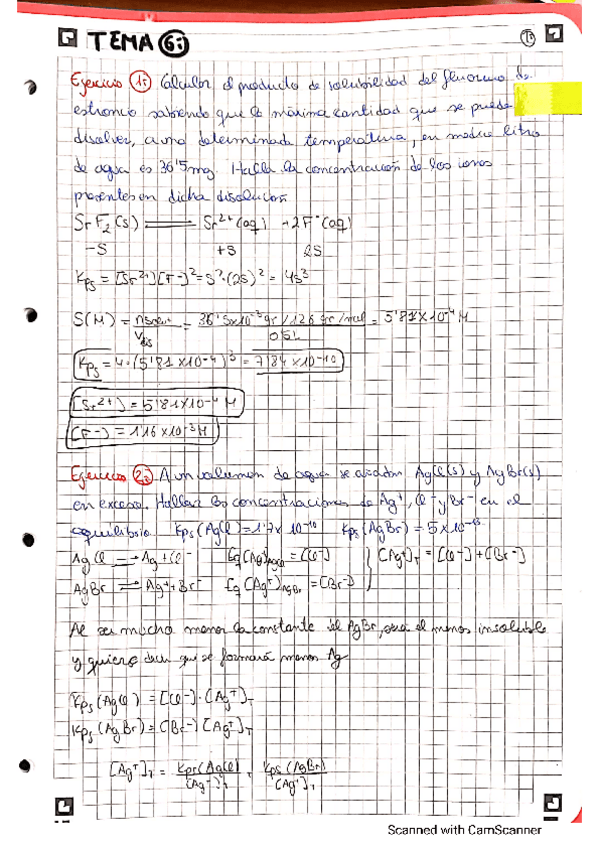 TEMA 6:
Ejercicio 1: Calcular el producto de solubilidad del fluoruro de
estroncio sabiendo que la máxima cantidad que se puede
disolver, a una determinada temperatura, en medio litro
de agua es 36'5mg Halla la concentración de los iones
presentes en dicha disolución
SrF2 (s) ⇌ Sr2+ (aq) + 2F- (aq)
-S +S 2S
Kps = [Sr2+][F-]2 = S·(2S)2 = 4S3
S(M) = = 36'5x10-3 gr / 126 gr/mol / 0'5L = 5'81x10-4 M
Kps = 4·(5'81x10-4)3 = 7'84x10-10
[Sr2+] = 5'81x10-4 M
[F-] = 1'16x10-3 M
Ejercicio 2: A un volumen de agua se añaden AgCl(s) y AgBr(s)
en exceso. Hallar las concentraciones de Ag+, Cl- y Br- en el
equilibrio Kps (AgCl) = 1'7x10-10 Kps (AgBr) = 5x10-13
AgCl ⇌ Ag+Cl- Eq [Ag+]AgCl = [Cl-] } [Ag+]T = [Cl-] + [Br-]
AgBr ⇌ Ag+ + Br- Eq [Ag+]AgBr = [Br-]
Al ser mucho menor la constante del AgBr, será el menos insoluble
y quiere decir que se formará menos Ag
Kps (AgCl) = [Cl-]·[Ag+]T
Kps (AgBr) = [Br-][Ag+]T
[Ag+]T = Kps(AgCl) / [Ag+]T + Kps (AgBr) / [Ag+]T
Scanned with CamScanner